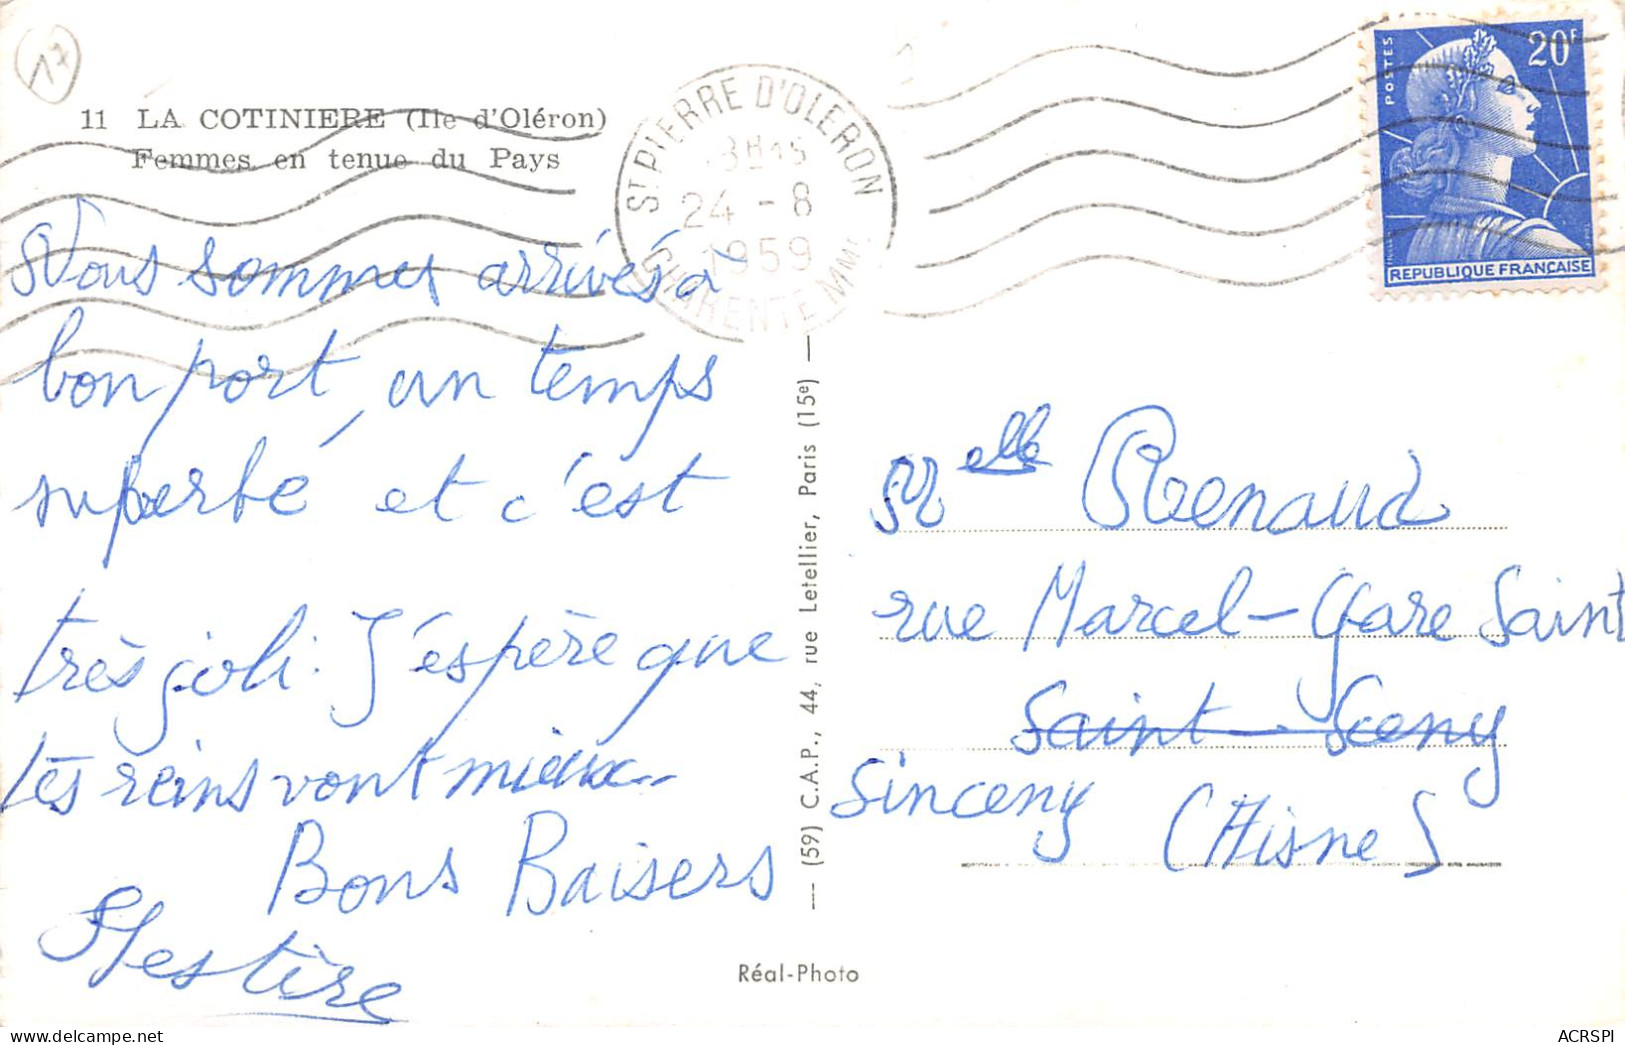 17
11 LA COTINIERE (Ile d'Oléron)
Femmes en tenue du Pays
ST PIERRE D'OLERON
24 - 8
1959
CHARENTE MME
POSTES
20F
REPUBLIQUE FRANÇAISE
Nous sommes arrivés à
bon port, un temps
superbe et c'est
très joli. J'espère que
tes reins vont mieux
Bons Baisers
(59) C.A.P., 44, rue Letellier, Paris (15e)
Melle Renaud
rue Marcel-Gare Saint
Saint-Sceny
Sinceny
(Aisne)
Réal-Photo
ACRSPI